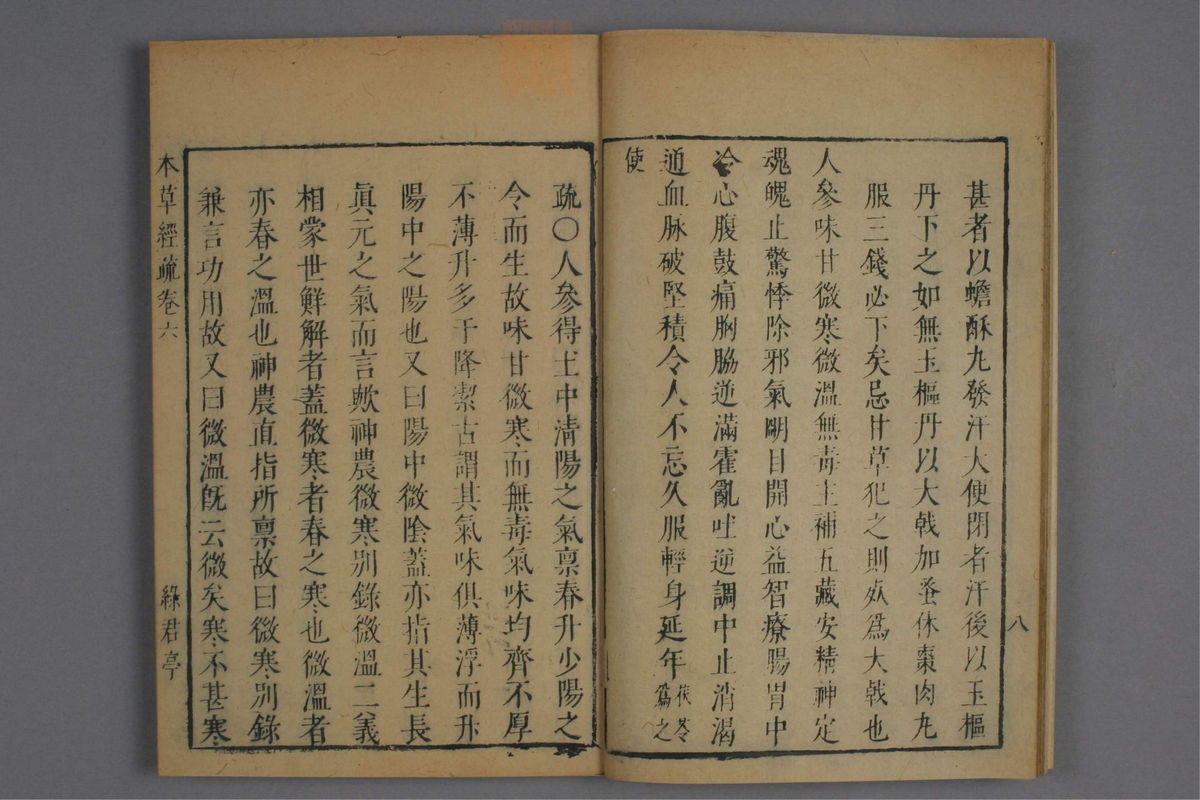 甚者以蟾酥丸發汗大便閉者汗後以玉樞
丹下之如無玉樞丹以大戟加蚤休棗肉丸
服三錢必下矣忌甘草犯之則殺爲大戟也
人參味甘微寒微溫無毒主補五藏安精神定
魂魄止驚悸除邪氣明目開心益智療腸胃中
冷心腹鼓痛胸脇逆滿霍亂吐逆調中止消渴
通血脉破堅積令人不忘久服輕身延年茯苓爲之
使
八
疏〇人參得土中清陽之氣禀春升少陽之
令而生故味甘微寒而無毒氣味均齊不厚
不薄升多于降潔古謂其氣味俱薄浮而升
陽中之陽也又曰陽中微陰蓋亦指其生長
眞元之氣而言歟神農微寒別錄微溫二義
相蒙世鮮解者蓋微寒者春之寒也微溫者
亦春之溫也神農直指所禀故曰微寒別錄
兼言功用故又曰微溫旣云微矣寒不甚寒
本草經疏卷六
綠君亭